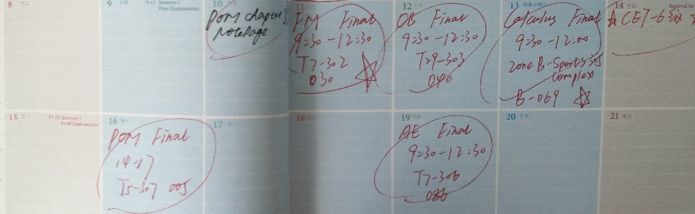 8
9
Final Examinations
10
POM chapter
Notepage
11
FM Final
9:30-12:30
T7-302
030
12
OB Final
9:30-12:30
T29-303
13
Calculus Final
9:30-12:00
zone B-Sports
complex
B-069
14
15
Final Examinations
16
POM Final
14-17
T5-307 005
17
18
19
AE Final
9:30-12:30
T7-306
20
21